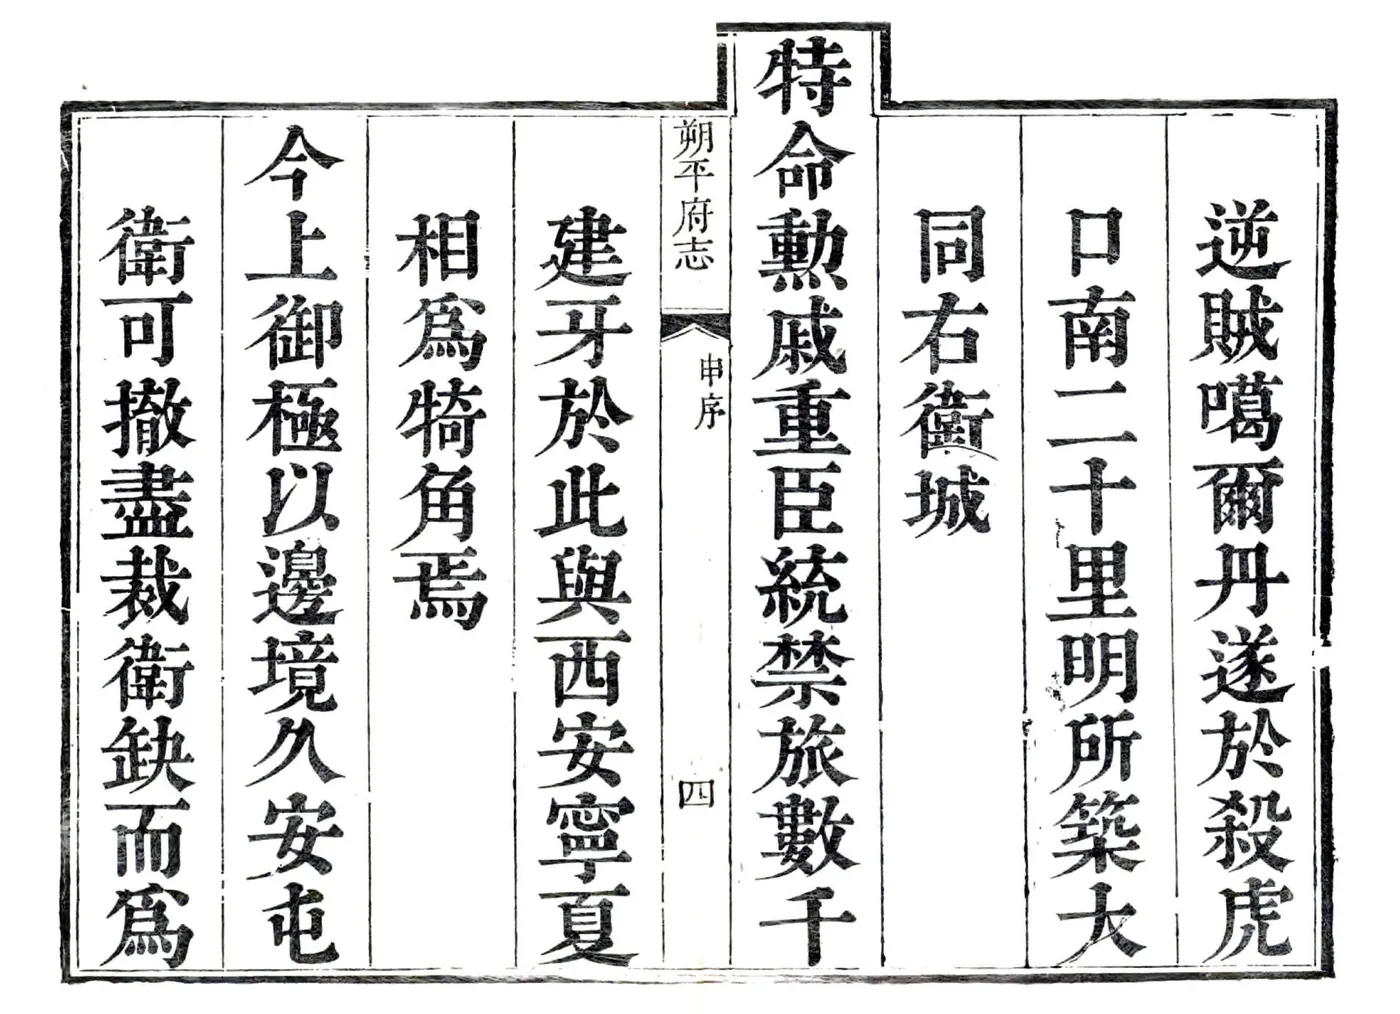 逆賊噶爾丹遂於殺虎
口南二十里明所築大
同右衛城
特命勲戚重臣統禁旅數千
朔平府志
申序
四
建牙於此與西安寧夏
相爲犄角焉
今上御極以邊境久安屯
衛可撤盡裁衛缺而爲